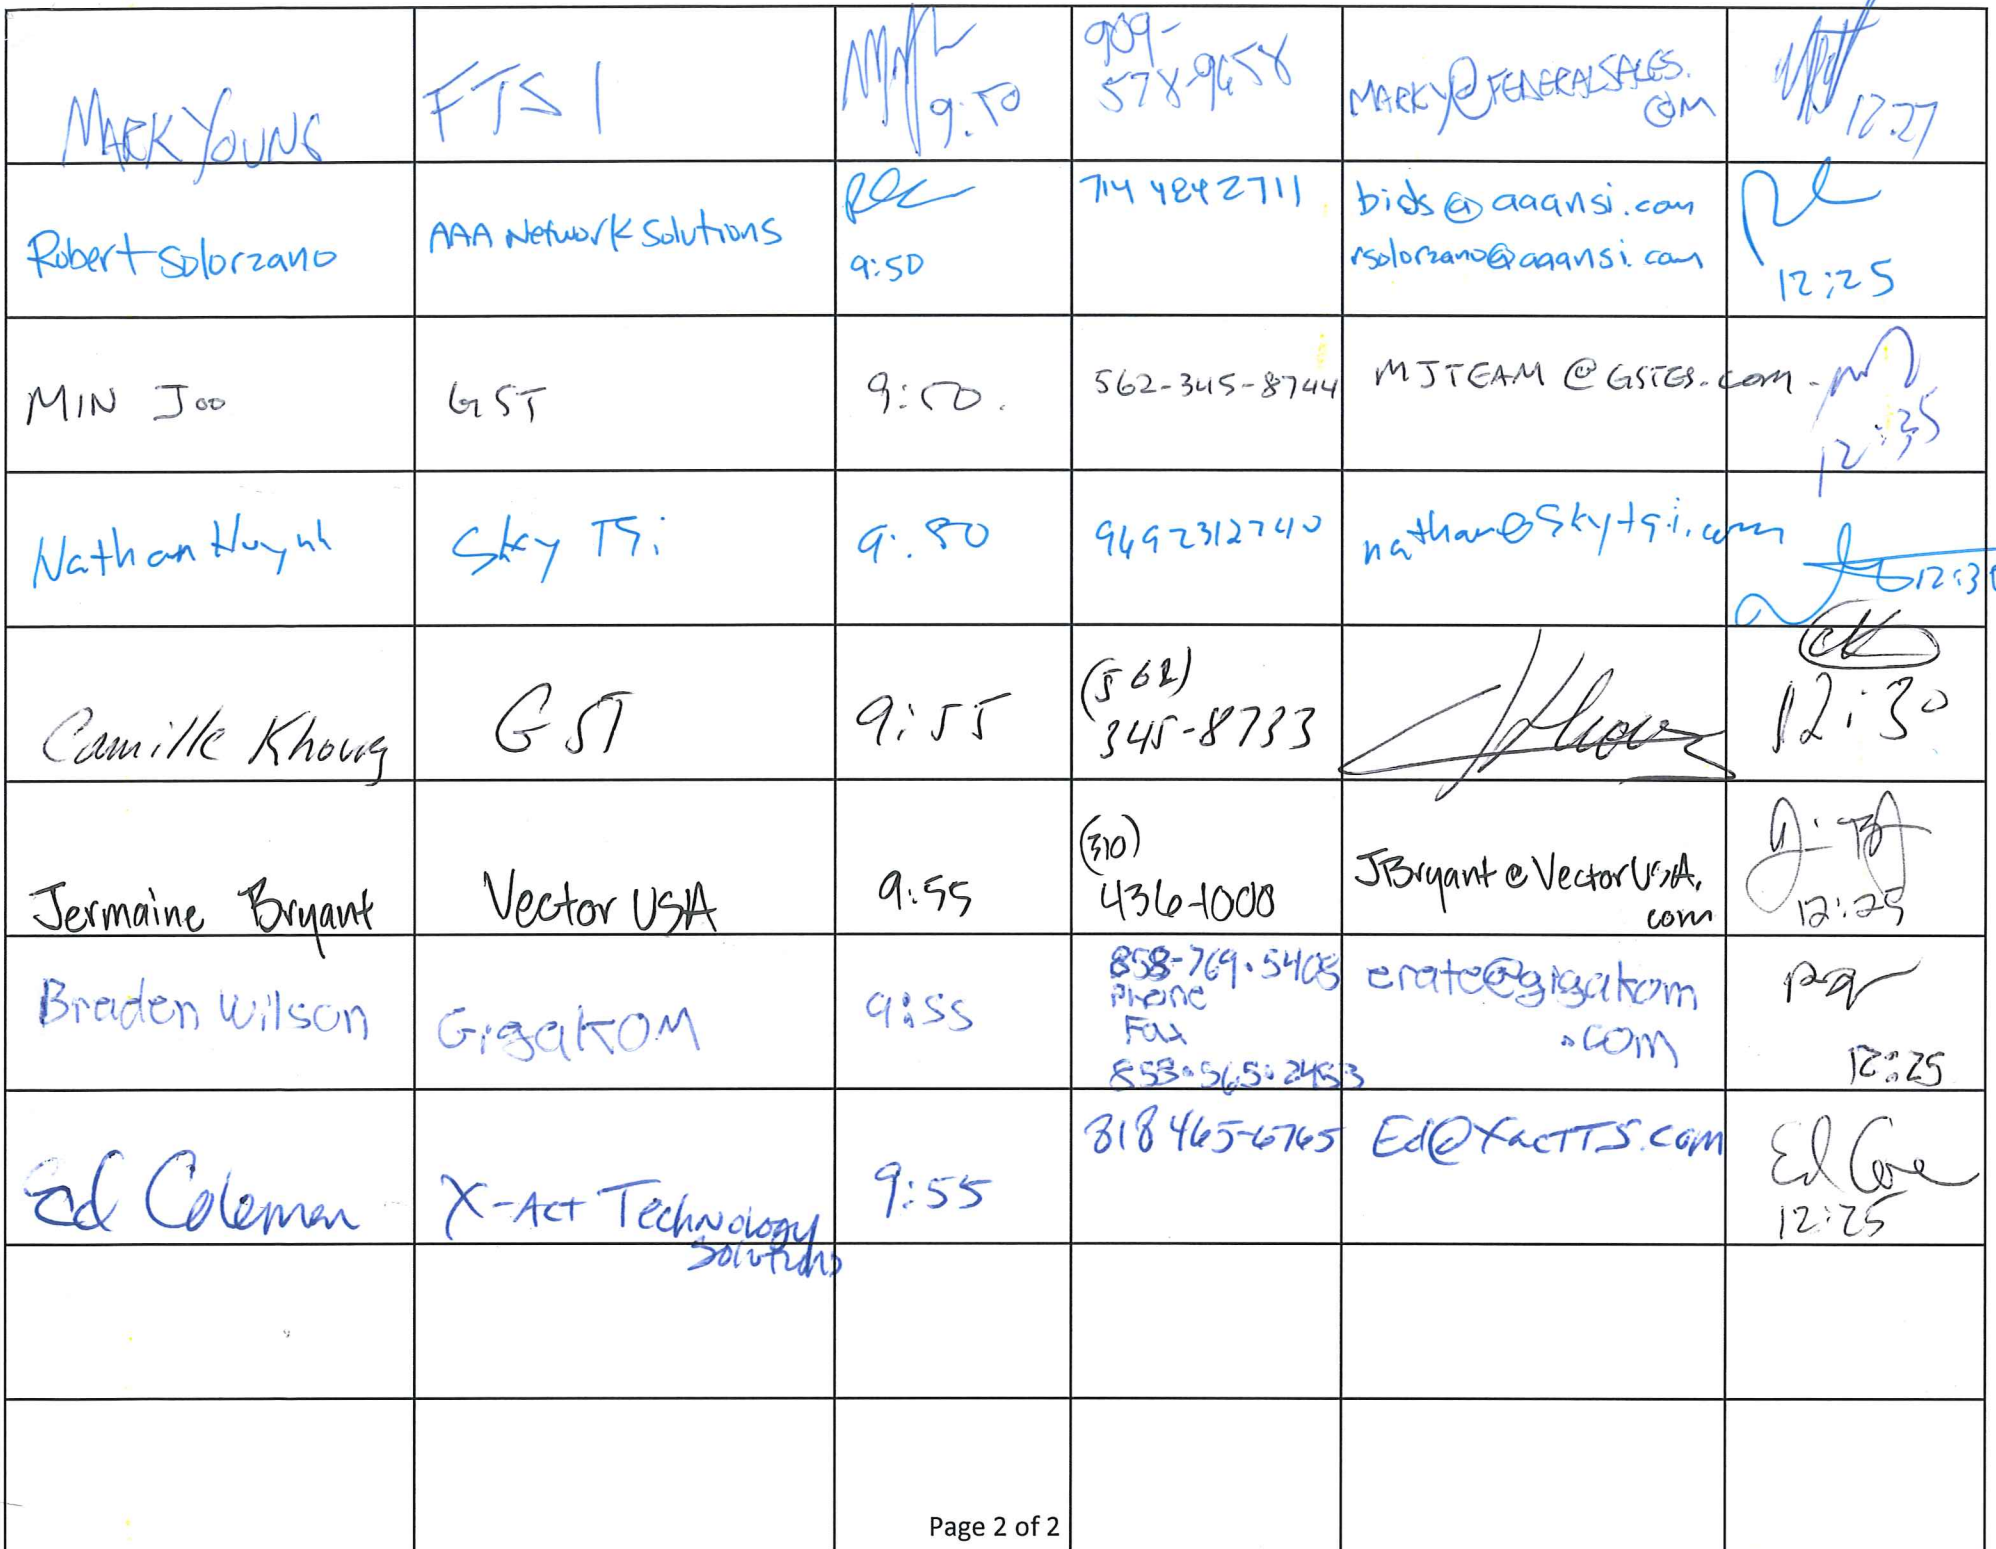 MARK YOUNG
FTS I
9:50
909-
578-9658
MARKY@FEDERALSALES.
COM
12:27
Robert Solorzano
AAA Network Solutions
9:50
714 424 2711
bids@aaansi.com
rsolorzano@aaansi.com
12:25
MIN Joo
GST
9:50.
562-345-8744
MJTEAM@GSTES.com
12:35
Nathan Huynh
Sky TSi
9:50
9492312740
12:3
Camille Khong
GST
9:55
(562)
345-8733
12:30
Jermaine Bryant
Vector USA
9:55
(310)
436-1000
JBryant@VectorUSA.
com
12:25
Braden Wilson
GigaKOM
9:55
858-769-5408
Phone
Fax
858-565-2453
erate@gigakom
.com
12:25
Ed Coleman
X-Act Technology
Solutions
9:55
818 465-6765
Ed@XactTS.com
12:25
Page 2 of 2